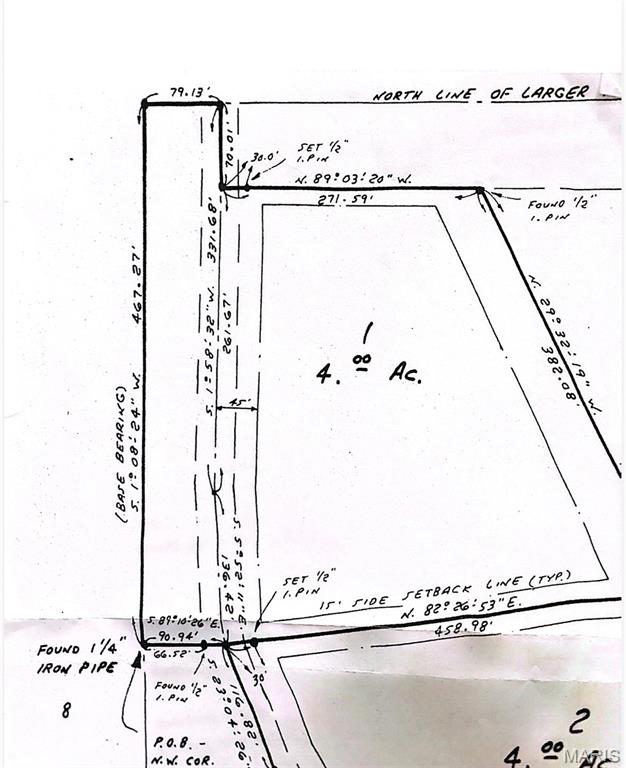 79.13'
NORTH LINE OF LARGER
70.01'
30.0'
SET 1/2"
I. PIN
N. 89° 03' 20" W.
271.59'
FOUND 1/2"
I. PIN
467.27'
331.68'
S. 1° 58' 32" W.
261.67'
N. 29° 32' 19" W.
382.08'
1
4.00 Ac.
45'
(BASE BEARING)
S. 1° 08' 24" W.
136.42
S. 5° 52' 11" E.
SET 1/2"
I. PIN
15' SIDE SETBACK LINE (TYP.)
N. 82° 26' 53" E.
458.98'
S. 89° 10' 26" E.
90.94'
66.52'
FOUND 1 1/4"
IRON PIPE
FOUND 1/2"
I. PIN
30'
116.82'
S. 23° 04' 26"
8
P.O.B. -
N.W. COR.
2
4.00 Ac
MARIS